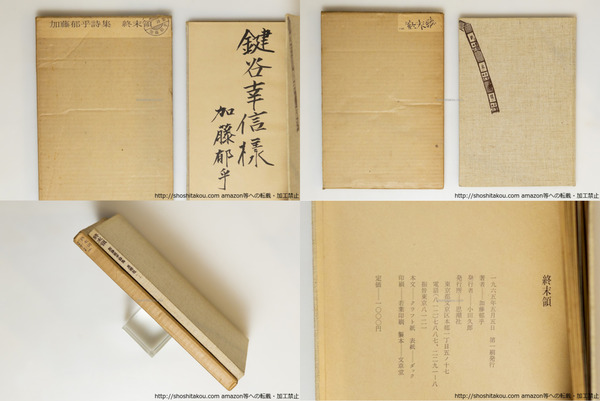 加藤郁乎詩集 終末領
鍵谷幸信様
加藤郁乎
http://shoshitakou.com amazon等への転載・加工禁止
終末領
http://shoshitakou.com amazon等への転載・加工禁止
http://shoshitakou.com amazon等への転載・加工禁止
終末領
一九六五年五月五日 第一刷発行
著者――加藤郁乎
発行者――小田久郎
発行所――思潮社
東京都文京区本郷一丁目五ノ十七
振替東京八一二一
本文――クラフト紙 表紙――
印刷――若葉印刷 製本――文章堂
定価――一〇〇〇円
http://shoshitakou.com amazon等への転載・加工禁止